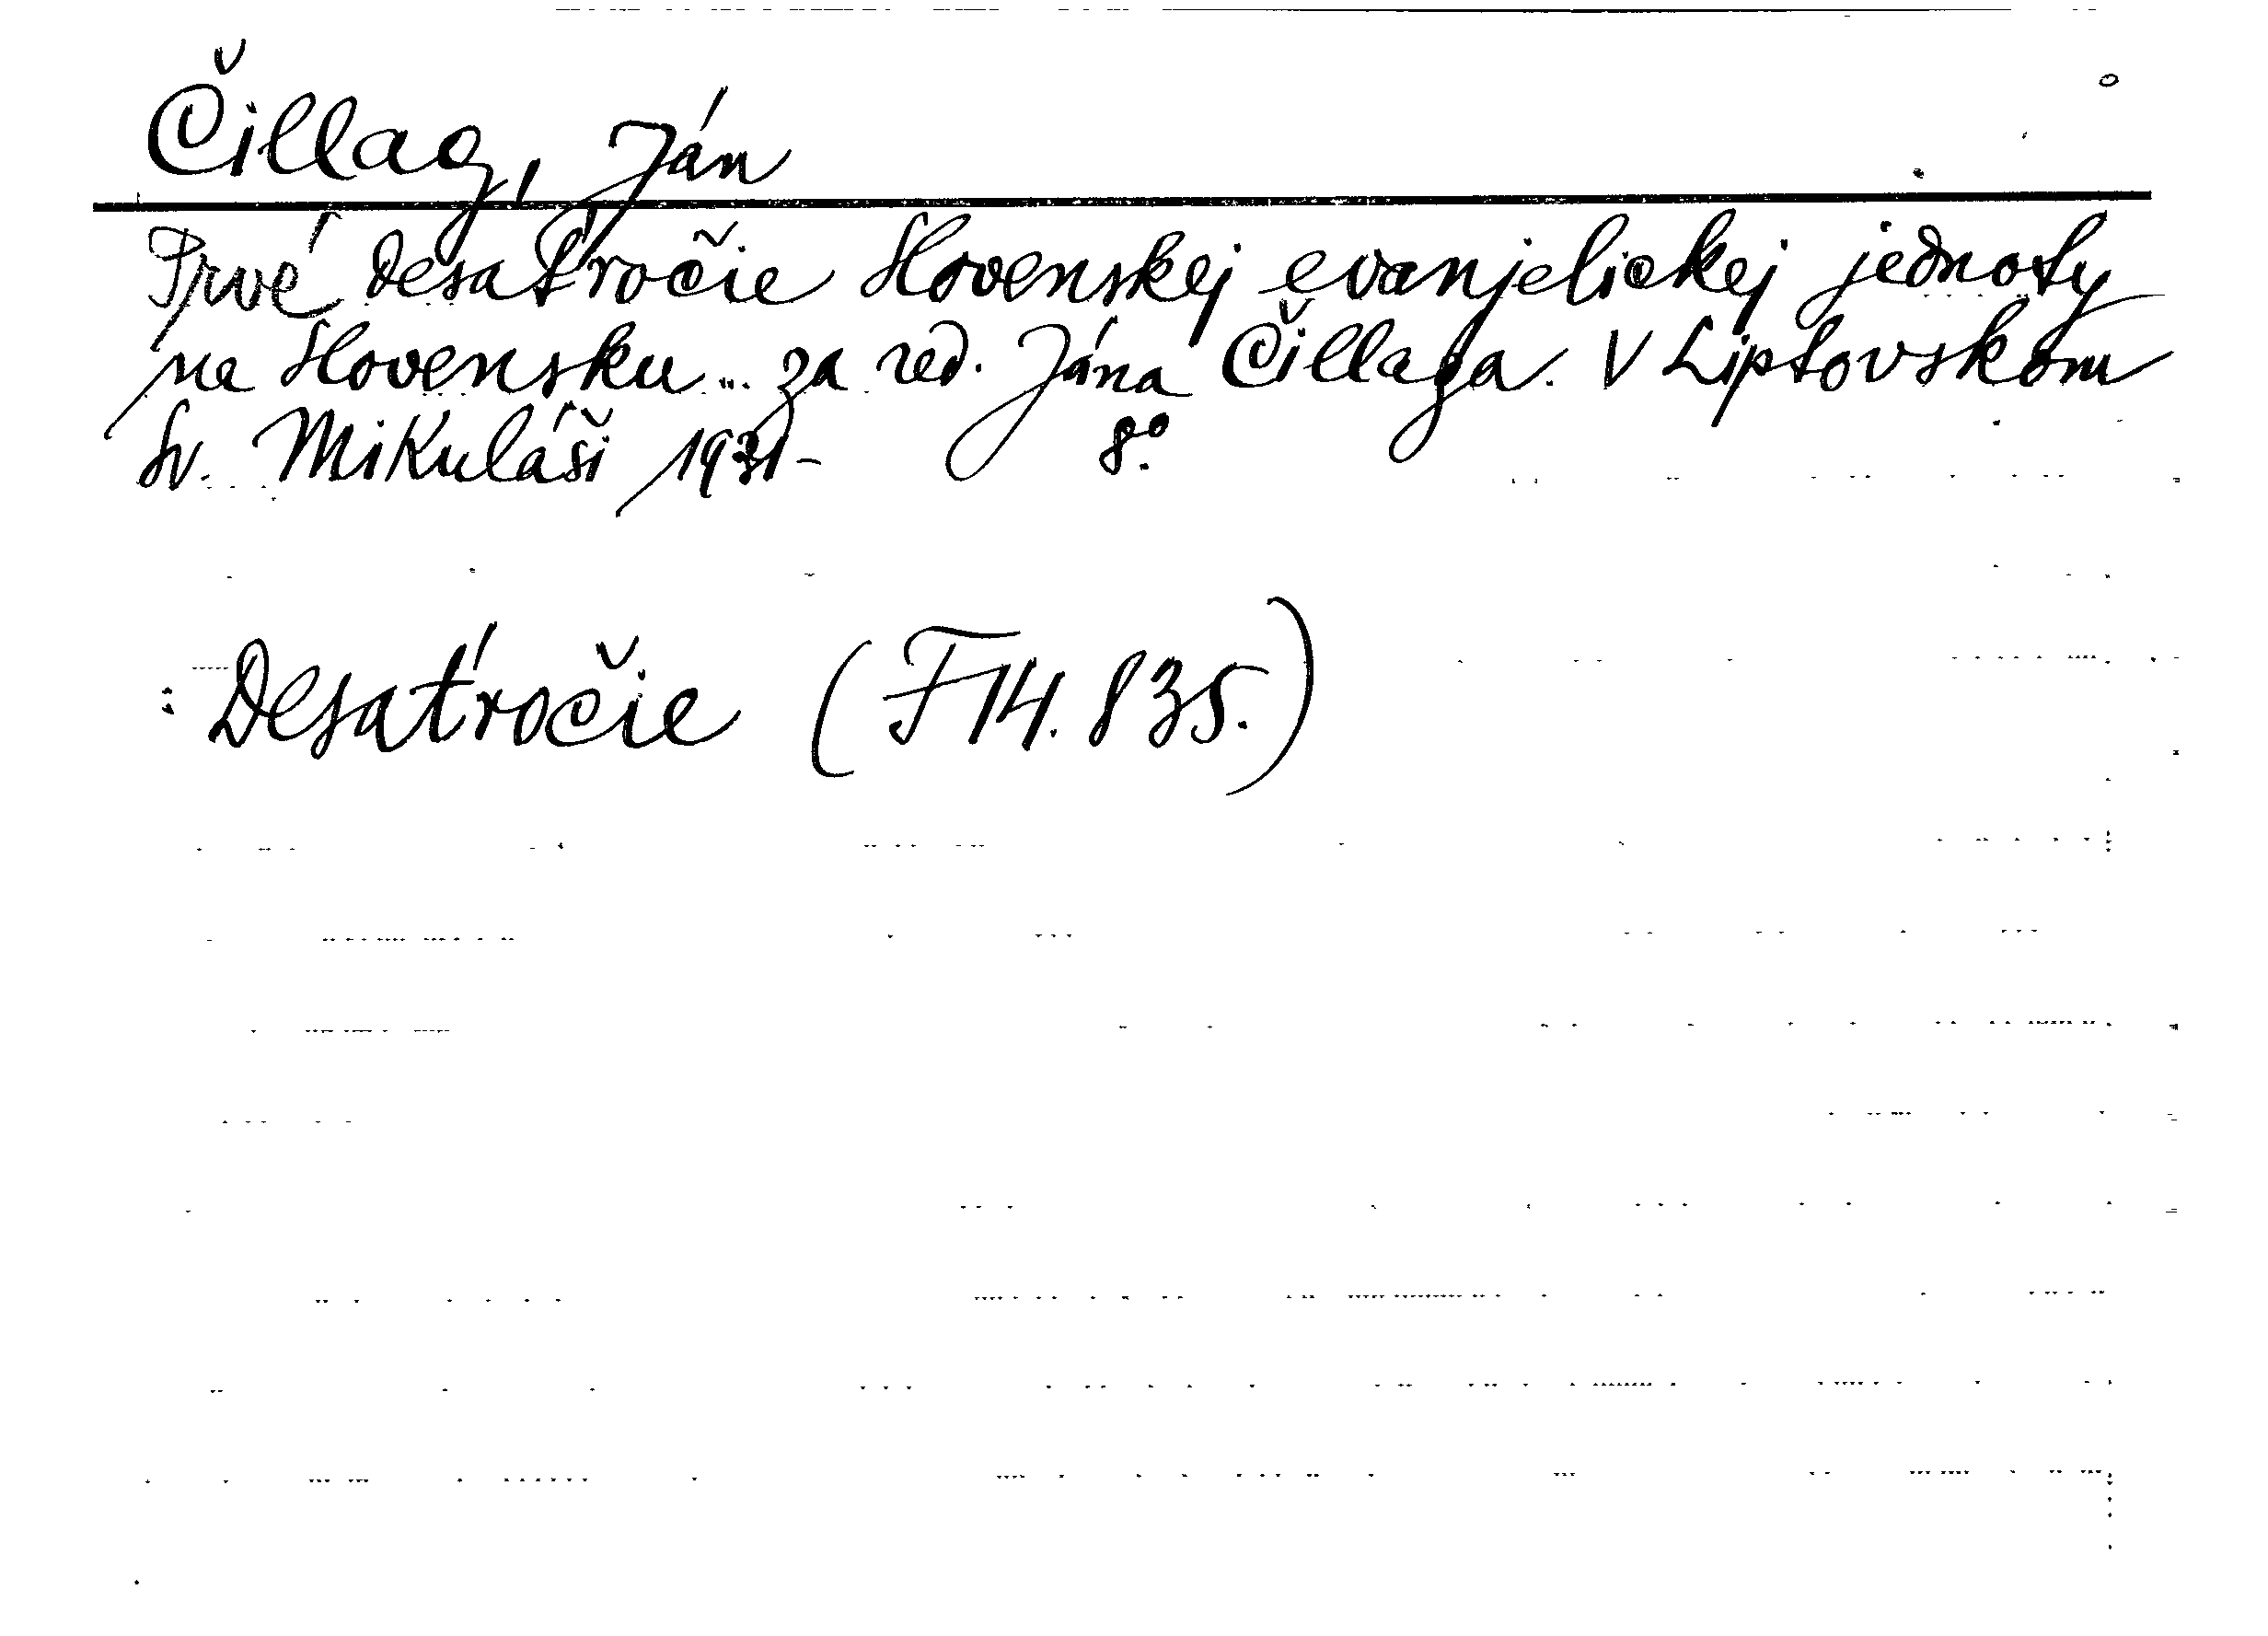 Čillag, Ján
Prvé desaťročie Slovenskej evanjelickej jednoty
na Slovensku... za red. Jána Čillaga. V Liptovskom
Sv. Mikuláši 1931- 8°.
Desaťročie (F 14.835.)